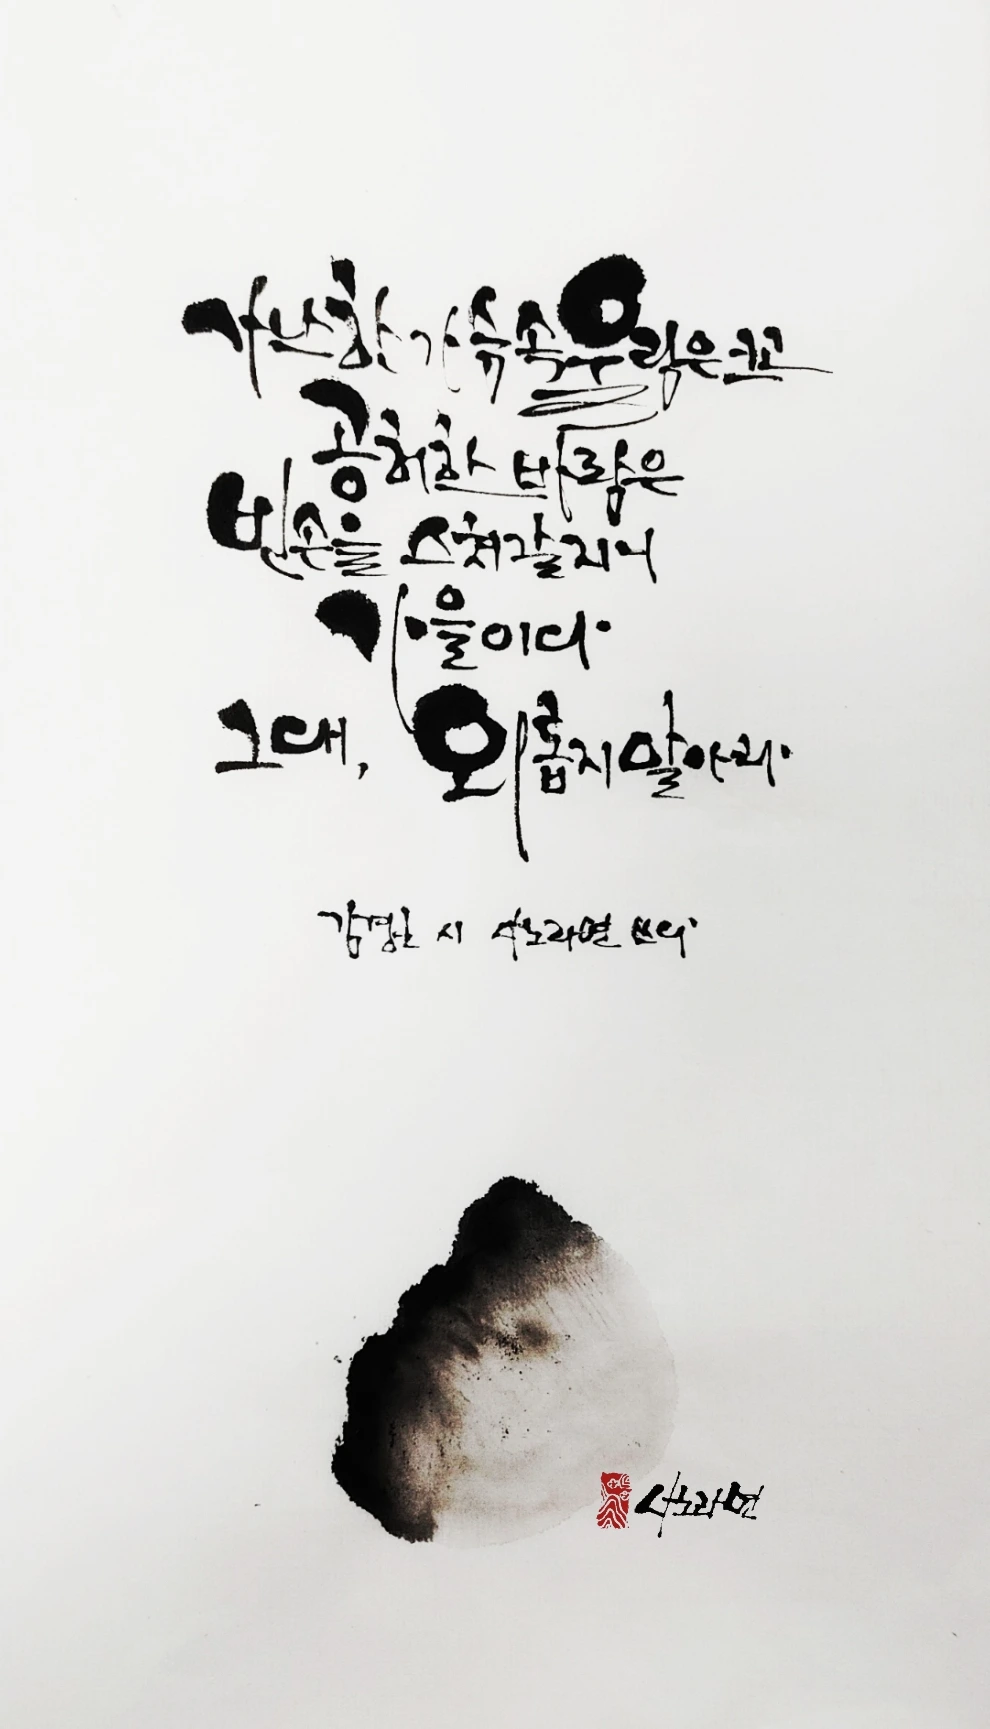 가난한 가슴속 울림은 크고
공허한 바람은
빈손을 스쳐갈지니
가을이다.
그대, 외롭지 말아라.
김경호 시 시노라연 쓰다
시노라연